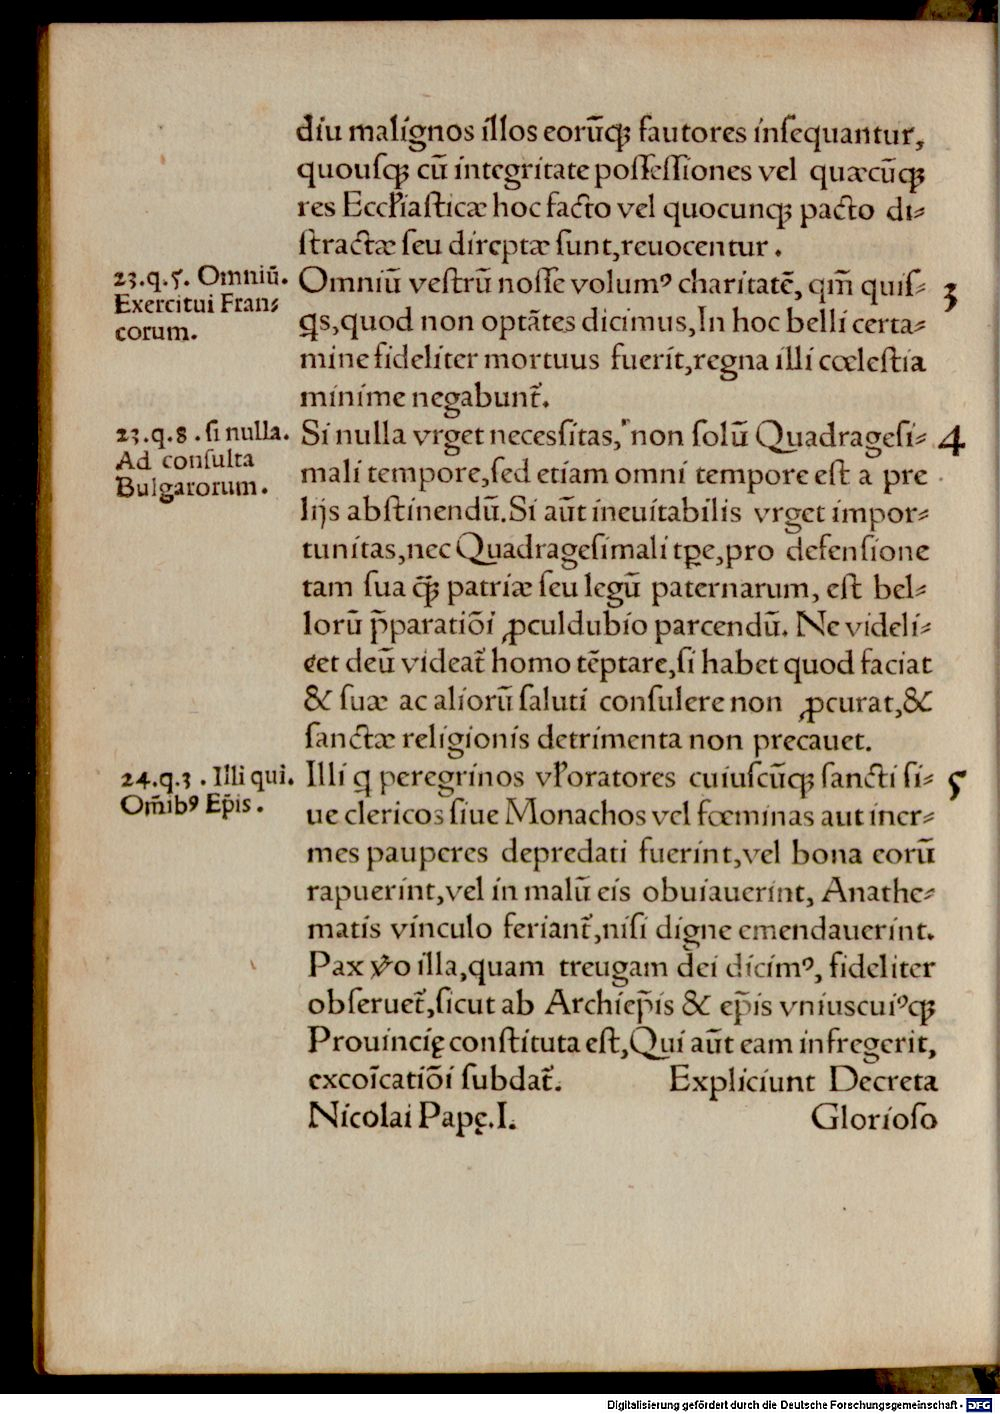 diu malignos illos eorūq; fautores inſequantur,
quouſq; cū integritate poſſeſſiones vel quæcūq;
res Eccłiaſticæ hoc facto vel quocunq; pacto di⸗
ſtractæ ſeu direptæ ſunt, reuocentur.
23.q.5. Omniū.
Exercitui Fran⸗
corum.
Omniū veſtrū noſſe volumꝰ charitatē, qm̄ quiſ⸗ 3
ꝗs, quod non optātes dicimus, In hoc belli certa⸗
mine fideliter mortuus fuerit, regna illi cœleſtia
minime negabunt᷑.
23.q.8. ſi nulla.
Ad conſulta
Bulgarorum.
Si nulla vrget neceſſitas, non ſolū Quadrageſi⸗ 4
mali tempore, ſed etiam omni tempore eſt a pre
lijs abſtinendū. Si aūt ineuitabilis vrget impor⸗
tunitas, nec Quadrageſimali tꝑe, pro defenſione
tam ſua q̄; patriæ ſeu legū paternarum, eſt bel⸗
lorū p̄paratiōi ꝓculdubio parcendū. Ne videli⸗
cet deū videat᷑ homo tēptare, ſi habet quod faciat
& ſuæ ac aliorū ſaluti conſulere non ꝓcurat, &
ſanctæ religionis detrimenta non precauet.
24.q.3. Illi qui.
Om̄ibꝰ Ep̄is.
Illi ꝗ peregrinos vł oratores cuiuſcūq; ſancti ſi⸗ 5
ue clericos ſiue Monachos vel fœminas aut iner⸗
mes pauperes depredati fuerint, vel bona eorū
rapuerint, vel in malū eis obuiauerint, Anathe⸗
matis vinculo feriant᷑, niſi digne emendauerint.
Pax v̊o illa, quam treugam dei dicimꝰ, fideliter
obſeruet᷑, ſicut ab Archiep̄is & ep̄is vniuscuiꝰq;
Prouincię conſtituta eſt, Qui aūt eam infregerit,
excoīcatiōi ſubdat᷑. Expliciunt Decreta
Nicolai Papę. I. Glorioſo
Digitalisierung gefördert durch die Deutsche Forschungsgemeinschaft - DFG